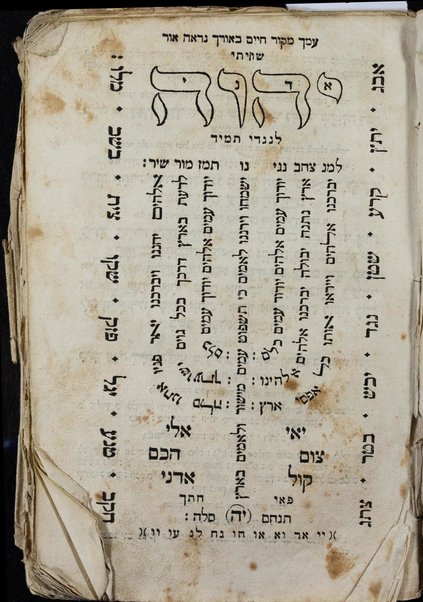 עמך מקור חיים באורך נראה אור
שויתי
יהוה
אדני
לנגדי תמיד
למנ צחב נני נו תמז מור שיר:
אבג ♦ יתץ ♦ קרע ♦ שטן ♦ נגד ♦ יכש ♦ בטר ♦ צתג
יברכנו אלהים וייראו אותו כל אפסי ארץ:
ארץ נתנה יבולה יברכנו אלהים אלהינו:
יודוך עמים אלהים יודוך עמים כלם:
ישמחו וירננו לאמים כי תשפוט עמים מישור ולאמים בארץ
יודוך עמים אלהים יודוך עמים כלם:
לדעת בארץ דרכך בכל גוים ישועתך:
אלהים יחננו ויברכנו יאר פניו אתנו סלה:
חקב ♦ טנע ♦ יגל ♦ פזק ♦ שקו ♦ צית
יאי אלי
צום הכם
קול אדני
פאי חתך
תנחם (יה) סלה:
יי אר וא או חו נח לנ עי יו